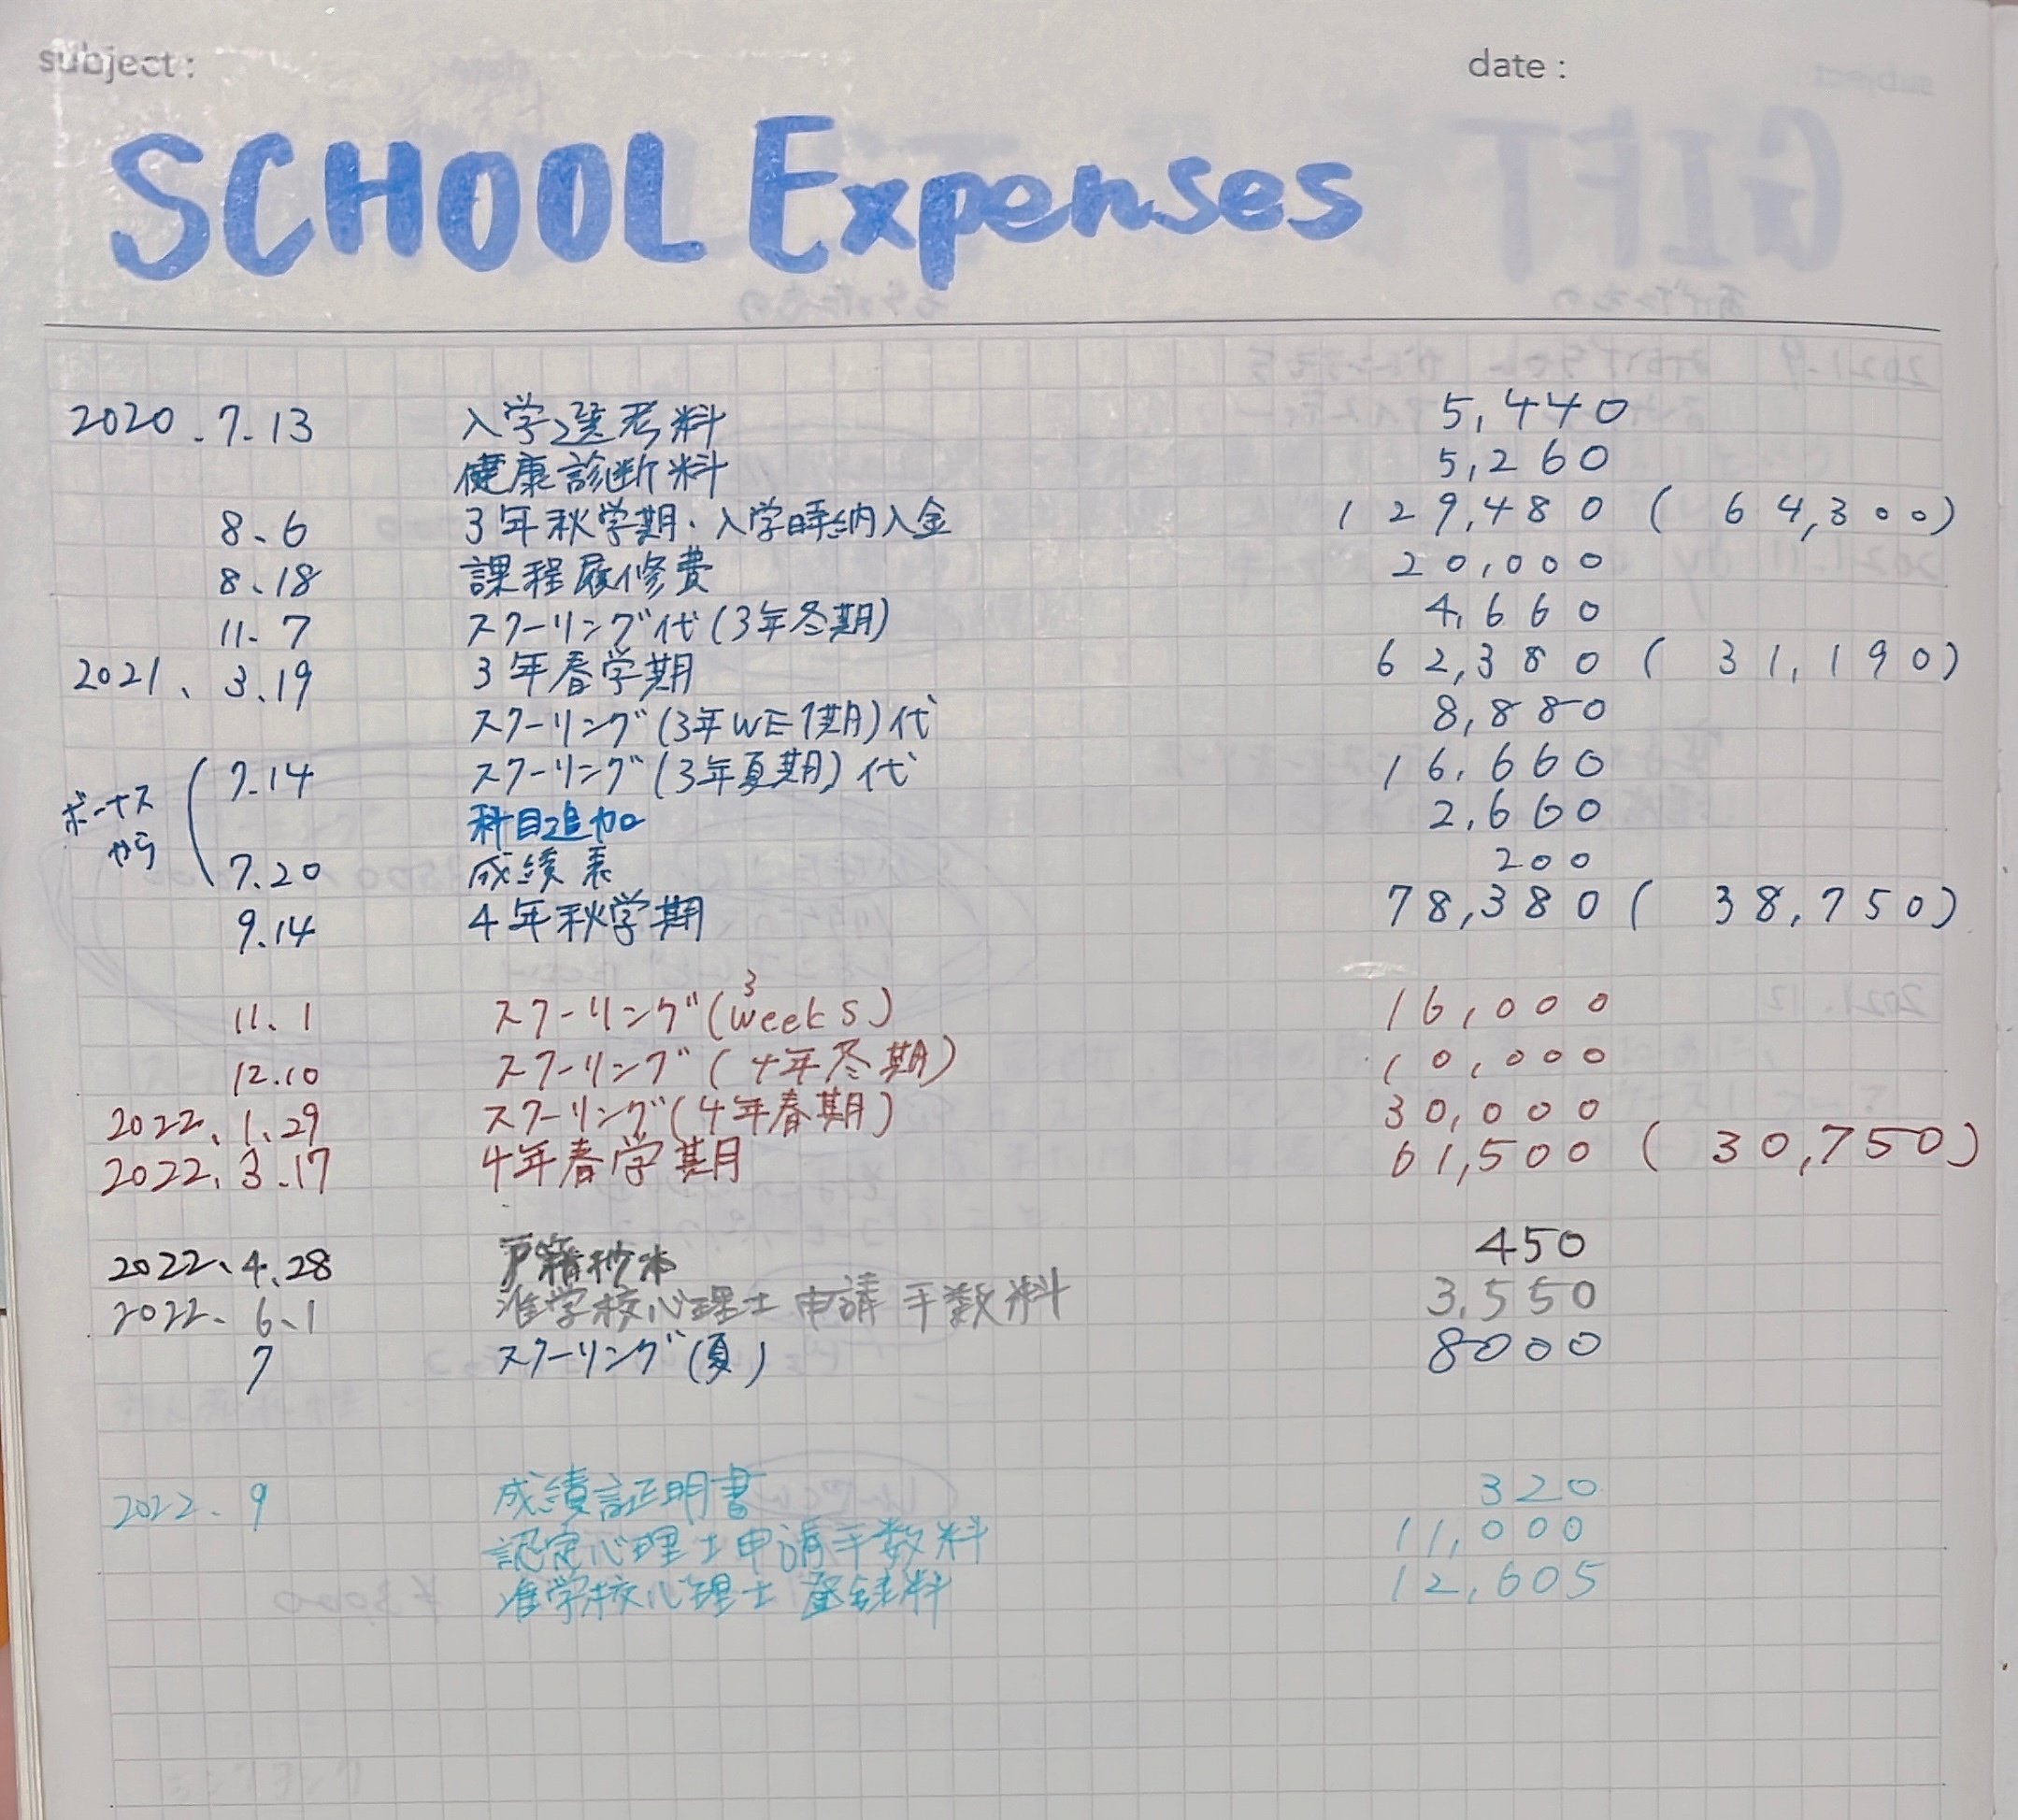 subject : date :
SCHOOL Expenses
2020.7.13 入学選考料 5,440
健康診断料 5,260
8.6 3年秋学期・入学時納入金 129,480 ( 64,300)
8.18 課程履修費 20,000
11.7 スクーリング代(3年冬期) 4,660
2021.3.19 3年春学期 62,380 ( 31,190)
スクーリング(3年WE1期)代 8,880
ボーナスから
7.14 スクーリング(3年夏期)代 16,660
科目追加 2,660
7.20 成績表 200
9.14 4年秋学期 78,380 ( 38,750)
11.1 スクーリング(3weeks) 16,000
12.10 スクーリング(4年冬期) 10,000
2022.1.29 スクーリング(4年春期) 30,000
2022.3.17 4年春学期 61,500 ( 30,750)
2022.4.28 戸籍抄本 450
2022.6.1 准学校心理士 申請手数料 3,550
7 スクーリング(夏) 8000
2022.9 成績証明書 320
認定心理士申請手数料 11,000
准学校心理士 登録料 12,605